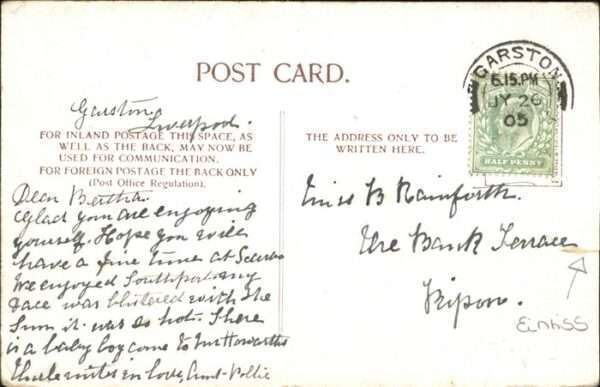 POST CARD.
Garston
Liverpool.
FOR INLAND POSTAGE THIS SPACE, AS
WELL AS THE BACK, MAY NOW BE
USED FOR COMMUNICATION.
FOR FOREIGN POSTAGE THE BACK ONLY
(Post Office Regulation).
Dear Bertha.
Glad you are enjoying
yourself. Hope you will
have a fine time at
We enjoyed Southport my
face was blistered with the
sun it was so hot. There
is a baby boy come to
in love, Aunt Pollie
THE ADDRESS ONLY TO BE
WRITTEN HERE.
GARSTON
6.15.PM
JY 26
05
HALF PENNY
Miss B Rainforth.
The Bank Terrace
Ripon.